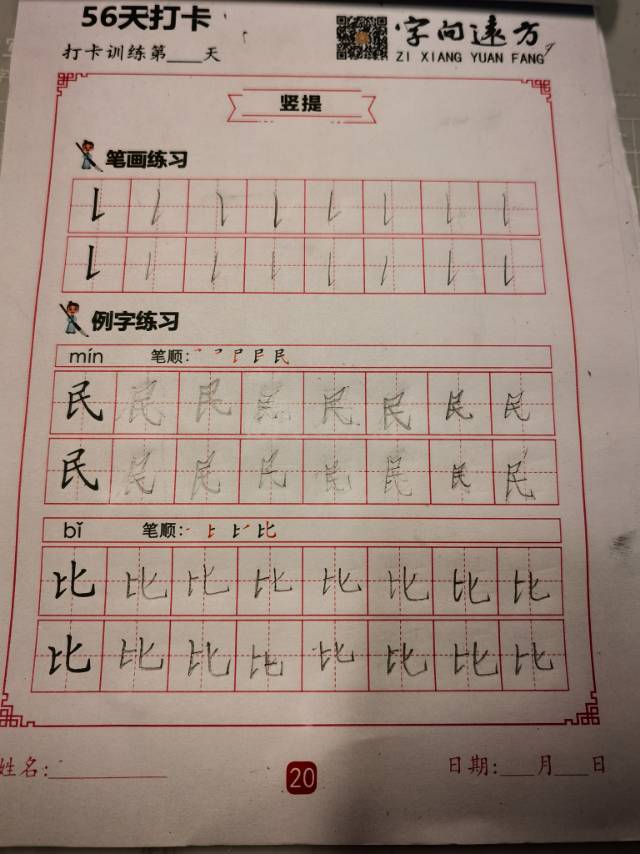 56天打卡
字向远方
打卡训练第___天
ZI XIANG YUAN FANG
竖提
笔画练习
例字练习
mín 笔顺:
民 民 民 民 民 民 民 民
民 民 民 民 民 民 民 民
bǐ 笔顺:
比 比 比 比 比 比 比 比
比 比 比 比 比 比 比 比
姓名:__________ 20 日期:___月___日